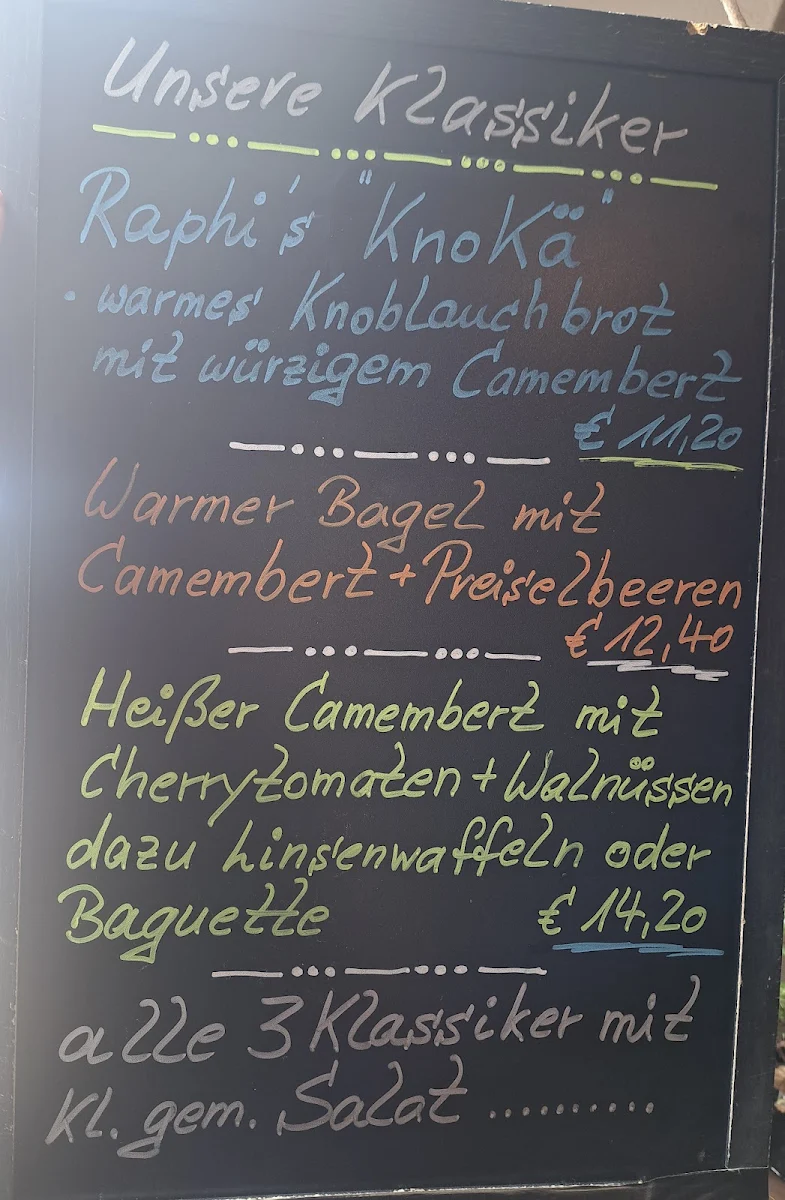 Unsere Klassiker
Raphi's "KnoKä"
• warmes Knoblauchbrot
mit würzigem Camembert
€ 11,20
Warmer Bagel mit
Camembert + Preiselbeeren
€ 12,40
Heißer Camembert mit
Cherrytomaten + Walnüssen
dazu Linsenwaffeln oder
Baguette € 14,20
alle 3 Klassiker mit
Kl. gem. Salat ..........